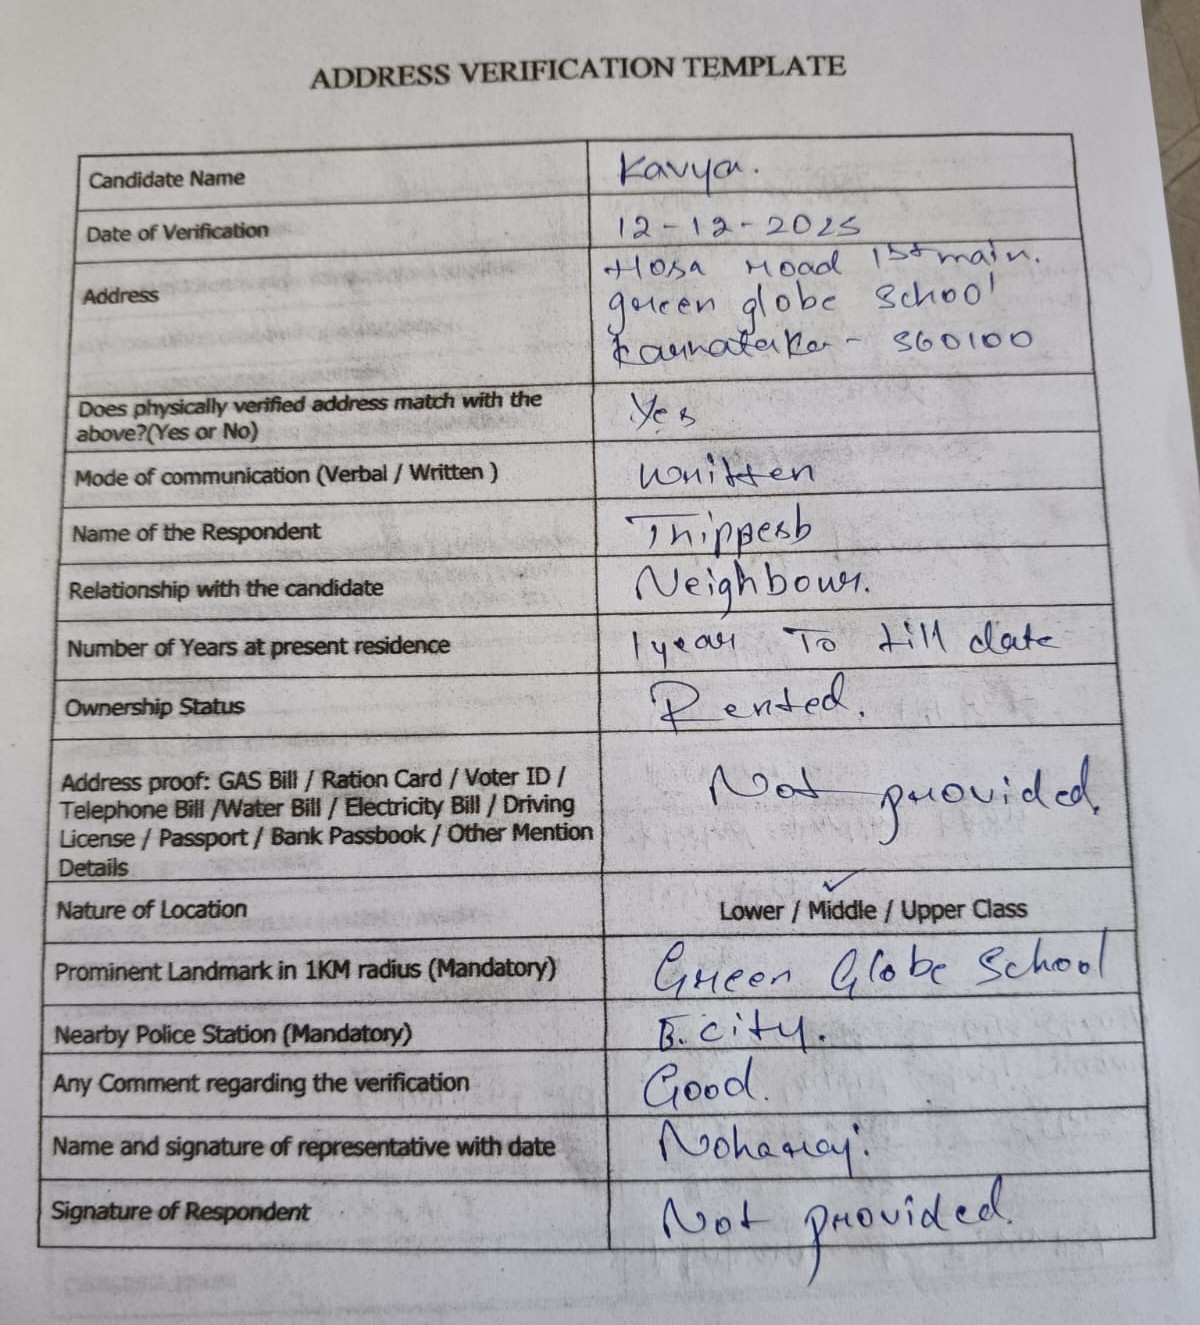 ADDRESS VERIFICATION TEMPLATE
Candidate Name Kavya.
Date of Verification 12-12-2025
Address Hosa Road 1st main.
green globe School
Karnataka - 560100
Does physically verified address match with the
above?(Yes or No) Yes
Mode of communication (Verbal / Written ) Written
Name of the Respondent Thippesh
Relationship with the candidate Neighbour.
Number of Years at present residence 1 year To till date
Ownership Status Rented.
Address proof: GAS Bill / Ration Card / Voter ID /
Telephone Bill /Water Bill / Electricity Bill / Driving
License / Passport / Bank Passbook / Other Mention
Details Not provided.
Nature of Location Lower / Middle / Upper Class
Prominent Landmark in 1KM radius (Mandatory) Green Globe School
Nearby Police Station (Mandatory) E. city.
Any Comment regarding the verification Good.
Name and signature of representative with date
Signature of Respondent Not provided.